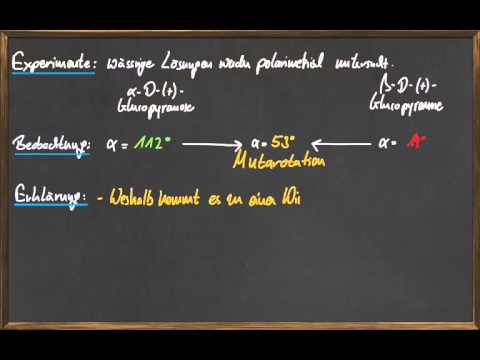 Experimente: wässrige Lösungen werden polarimetrisch untersucht.
α-D-(+)-
Glucopyranose
β-D-(+)-
Glucopyranose
Beobachtung: α = 112° → α = 53° ← α =
Mutarotation
Erklärung: - Weshalb kommt es zu einer Wi